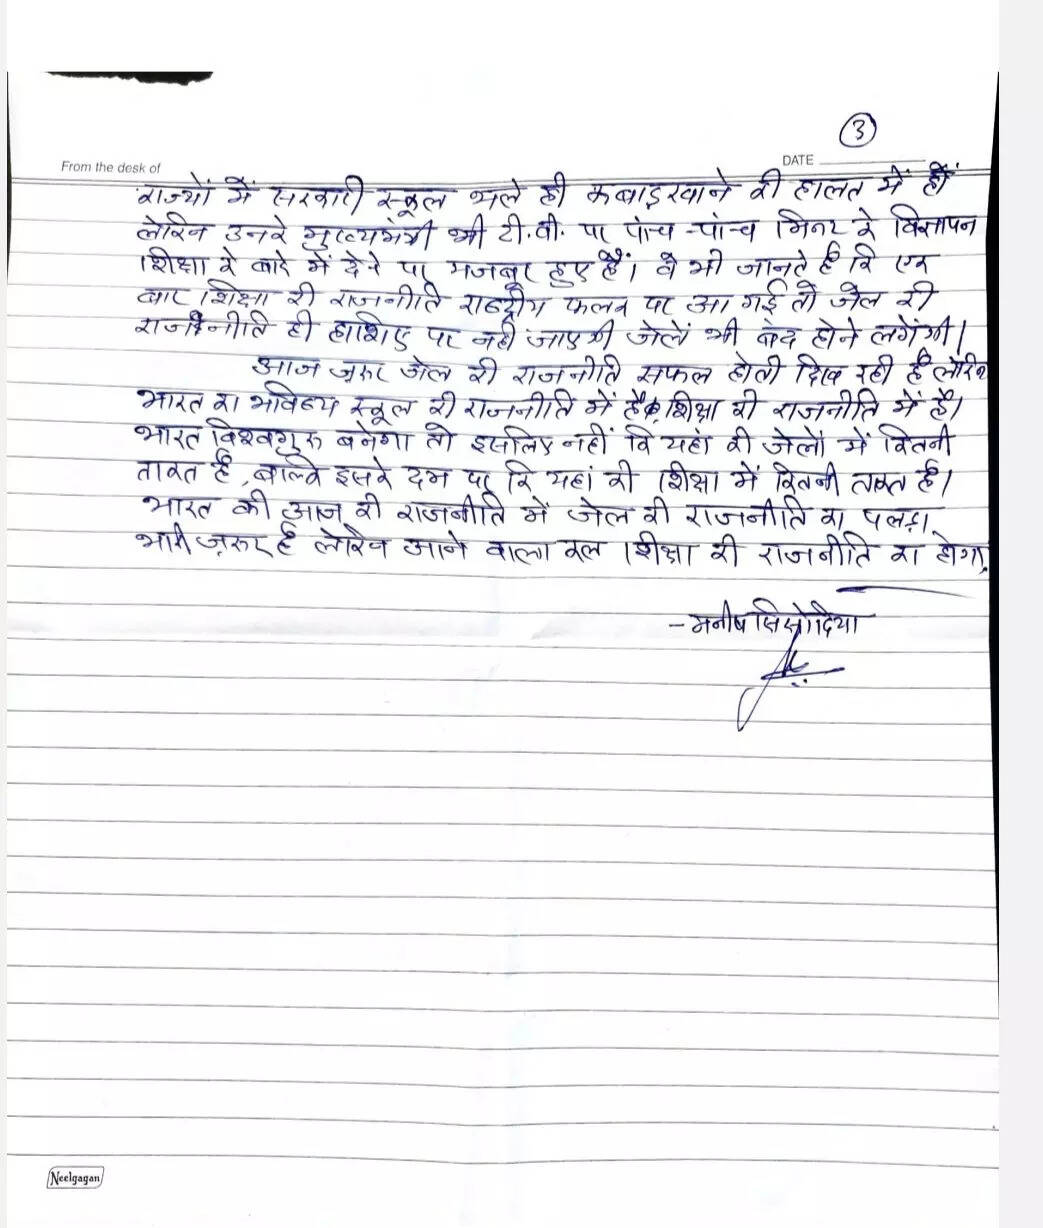 3
From the desk of
DATE
राज्यों में सरकारी स्कूल भले ही कबाड़खाने की हालत में हों
लेकिन उनके मुख्यमंत्री भी टी.वी. पर पांच-पांच मिनट के विज्ञापन
शिक्षा के बारे में देने पर मजबूर हुए हैं। वे भी जानते हैं कि एक
बार शिक्षा की राजनीति राष्ट्रीय फलक पर आ गई तो जेल की
राजनीति ही हाशिए पर नहीं जाएगी जेलें भी बंद होने लगेंगी।
आज ज़रूर जेल की राजनीति सफल होती दिख रही है लेकिन
भारत का भविष्य स्कूल की राजनीति में है, शिक्षा की राजनीति में है।
भारत विश्वगुरु बनेगा तो इसलिए नहीं कि यहां की जेलों में कितनी
ताकत है, बल्कि इसके दम पर कि यहां की शिक्षा में कितनी ताकत है।
भारत की आज की राजनीति में जेल की राजनीति का पलड़ा
भारी ज़रूर है लेकिन आने वाला कल शिक्षा की राजनीति का होगा,
- मनीष सिसोदिया
Neelgagan